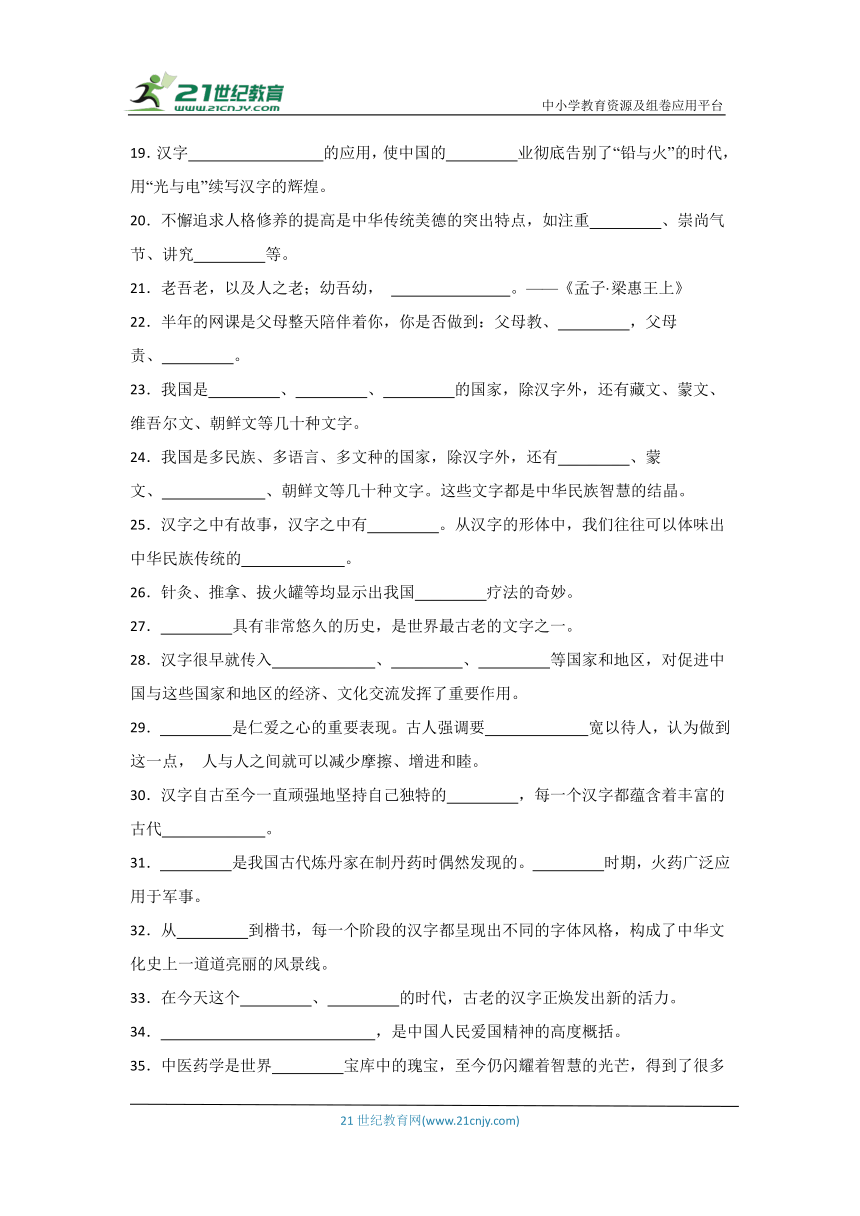 21世纪教育
WWW.21CNJY.COM
中小学教育资源及组卷应用平台
19．汉字__________的应用，使中国的__________业彻底告别了“铅与火”的时代，
用“光与电”续写汉字的辉煌。
20．不懈追求人格修养的提高是中华传统美德的突出特点，如注重__________、崇尚气
节、讲究__________等。
21．老吾老，以及人之老；幼吾幼， __________。——《孟子·梁惠王上》
22．半年的网课是父母整天陪伴着你，你是否做到：父母教、__________，父母
责、__________。
23．我国是__________、__________、__________的国家，除汉字外，还有藏文、蒙文、
维吾尔文、朝鲜文等几十种文字。
24．我国是多民族、多语言、多文种的国家，除汉字外，还有__________、蒙
文、__________、朝鲜文等几十种文字。这些文字都是中华民族智慧的结晶。
25．汉字之中有故事，汉字之中有__________。从汉字的形体中，我们往往可以体味出
中华民族传统的__________。
26．针灸、推拿、拔火罐等均显示出我国__________疗法的奇妙。
27．__________具有非常悠久的历史，是世界最古老的文字之一。
28．汉字很早就传入__________、__________、__________等国家和地区，对促进中
国与这些国家和地区的经济、文化交流发挥了重要作用。
29．__________是仁爱之心的重要表现。古人强调要__________宽以待人，认为做到
这一点， 人与人之间就可以减少摩擦、增进和睦。
30．汉字自古至今一直顽强地坚持自己独特的__________，每一个汉字都蕴含着丰富的
古代__________。
31．__________是我国古代炼丹家在制丹药时偶然发现的。__________时期，火药广泛应
用于军事。
32．从__________到楷书，每一个阶段的汉字都呈现出不同的字体风格，构成了中华文
化史上一道道亮丽的风景线。
33．在今天这个__________、__________的时代，古老的汉字正焕发出新的活力。
34．__________，是中国人民爱国精神的高度概括。
35．中医药学是世界__________宝库中的瑰宝，至今仍闪耀着智慧的光芒，得到了很多
21世纪教育网(www.21cnjy.com)